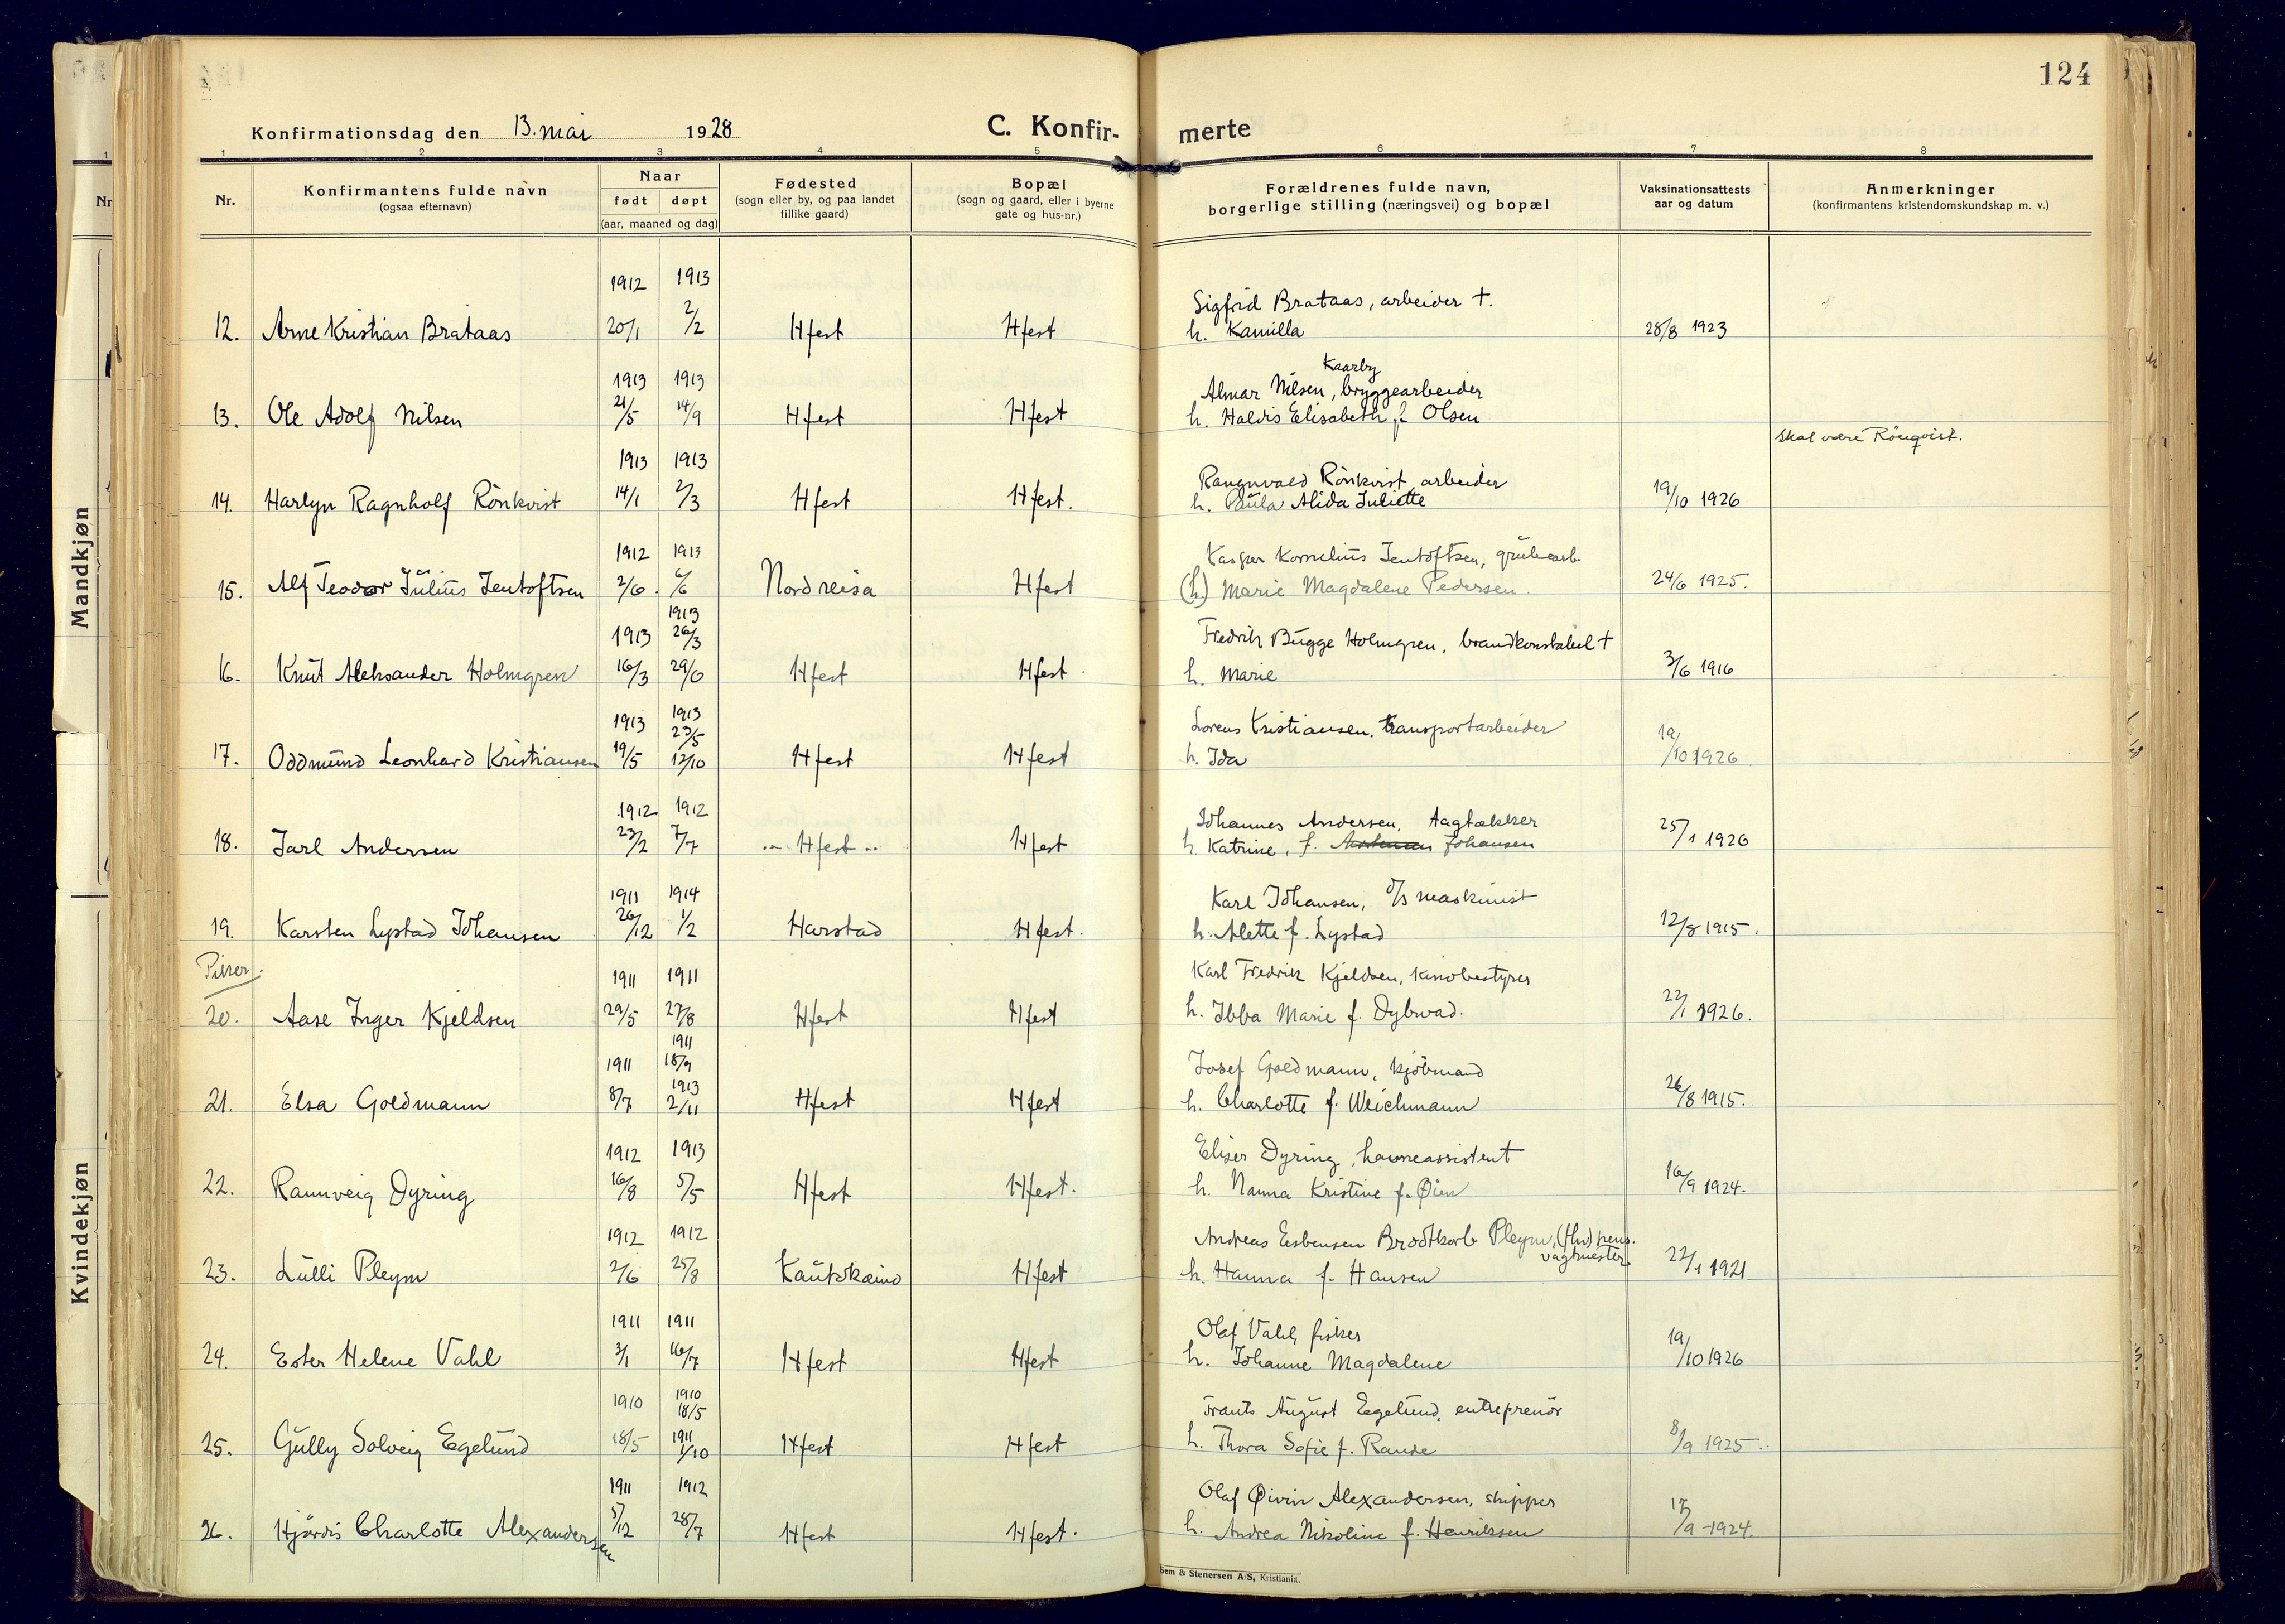 124
Konfirmationsdag den 13. mai 1928
C. Konfir- merte
1 2 3 4 5 6 7 8
Nr.
Konfirmantens fulde navn
(ogsaa efternavn)
Naar
født døpt
(aar, maaned og dag)
Fødested
(sogn eller by, og paa landet
tillike gaard)
Bopæl
(sogn og gaard, eller i byerne
gate og hus-nr.)
Forældrenes fulde navn,
borgerlige stilling (næringsvei) og bopæl
Vaksinationsattests
aar og datum
Anmerkninger
(konfirmantens kristendomskundskap m. v.)
Mandkjøn
1912 1913
Sigfrid Brataas, arbeider †.
12. Arne Kristian Brataas 20/1 2/2 Hfest Hfest h. Kamilla 28/8 1923
Kaarby
1913 1913 Almar Nilsen, bryggearbeider
13. Ole Adolf Nilsen 21/5 14/9 Hfest Hfest h. Haldis Elisabeth f. Olsen
Skal være Rönqvist.
1913 1913 Rangnvald Rönkvist, arbeider
14. Harlyn Ragnholf Rönkvist 14/1 2/3 Hfest Hfest. h. Paula Alida Juliette 19/10 1926
1912 1913 Kasper Kornelius Jentoftsen, grubearb.
15. Alf Teodor Julius Jentoftsen 2/6 6/6 Nordreisa Hfest (h.) Marie Magdalene Pedersen. 24/6 1925.
1913 1913 26/3 Fredrik Bugge Holmgren, brandkonstabel †
16. Knut Aleksander Holmgren 16/3 29/6 Hfest Hfest h. Marie 3/6 1916
1913 1913 23/5 Lorens Kristiansen, transportarbeider
17. Oddmund Leonhard Kristiansen 19/5 12/10 Hfest Hfest h. Ida 19/10 1926
1912 1912 Johannes Andersen, Aagtækker
18. Jarl Andersen 23/2 7/7 Hfest Hfest h. Katrine, f. Johansen 25/1 1926
1911 1914 Karl Johansen, d/s maskinist
19. Karsten Lystad Johansen 26/12 1/2 Harstad Hfest. h. Alette f. Lystad 12/8 1915.
Kvindekjøn
Piker.
1911 1911 Karl Fredrik Kjeldsen, kinobestyrer
20. Aase Inger Kjeldsen 29/5 27/8 Hfest Hfest h. Ibba Marie f. Dybwad. 22/1 1926.
1911 1911 18/9 Josef Goldmann, kjöbmand
21. Elsa Goldmann 8/7 1913 2/11 Hfest Hfest h. Charlotte f. Weichmann 26/8 1915.
1912 1913 Eliser Dyring, havneassistent
22. Rannveig Dyring 16/8 5/5 Hfest Hfest. h. Nanna Kristine f. Øien 16/9 1924.
1912 1912 Andreas Esbensen Brodtkorb Pleym, (fhv) pens.
vagtmester
23. Lulli Pleym 2/6 25/8 Kautokeino Hfest h. Hanna f. Hansen 22/1 1921
1911 1911 Olaf Vahl, fisker
24. Ester Helene Vahl 3/1 16/7 Hfest Hfest h. Johanne Magdalene 19/10 1926
1910 1910 18/5 Frants August Egelund, entreprenör
25. Gully Solveig Egelund 18/5 1911 1/10 Hfest Hfest h. Thora Sofie f. Rande 8/9 1925.
1911 1912 Olaf Øivin Alexandersen, skipper
26. Hjördis Charlotte Alexandersen 5/12 28/7 Hfest Hfest. h. Andrea Nikoline f. Henriksen 17/9 1924.
Sem & Stenersen A/S, Kristiania.